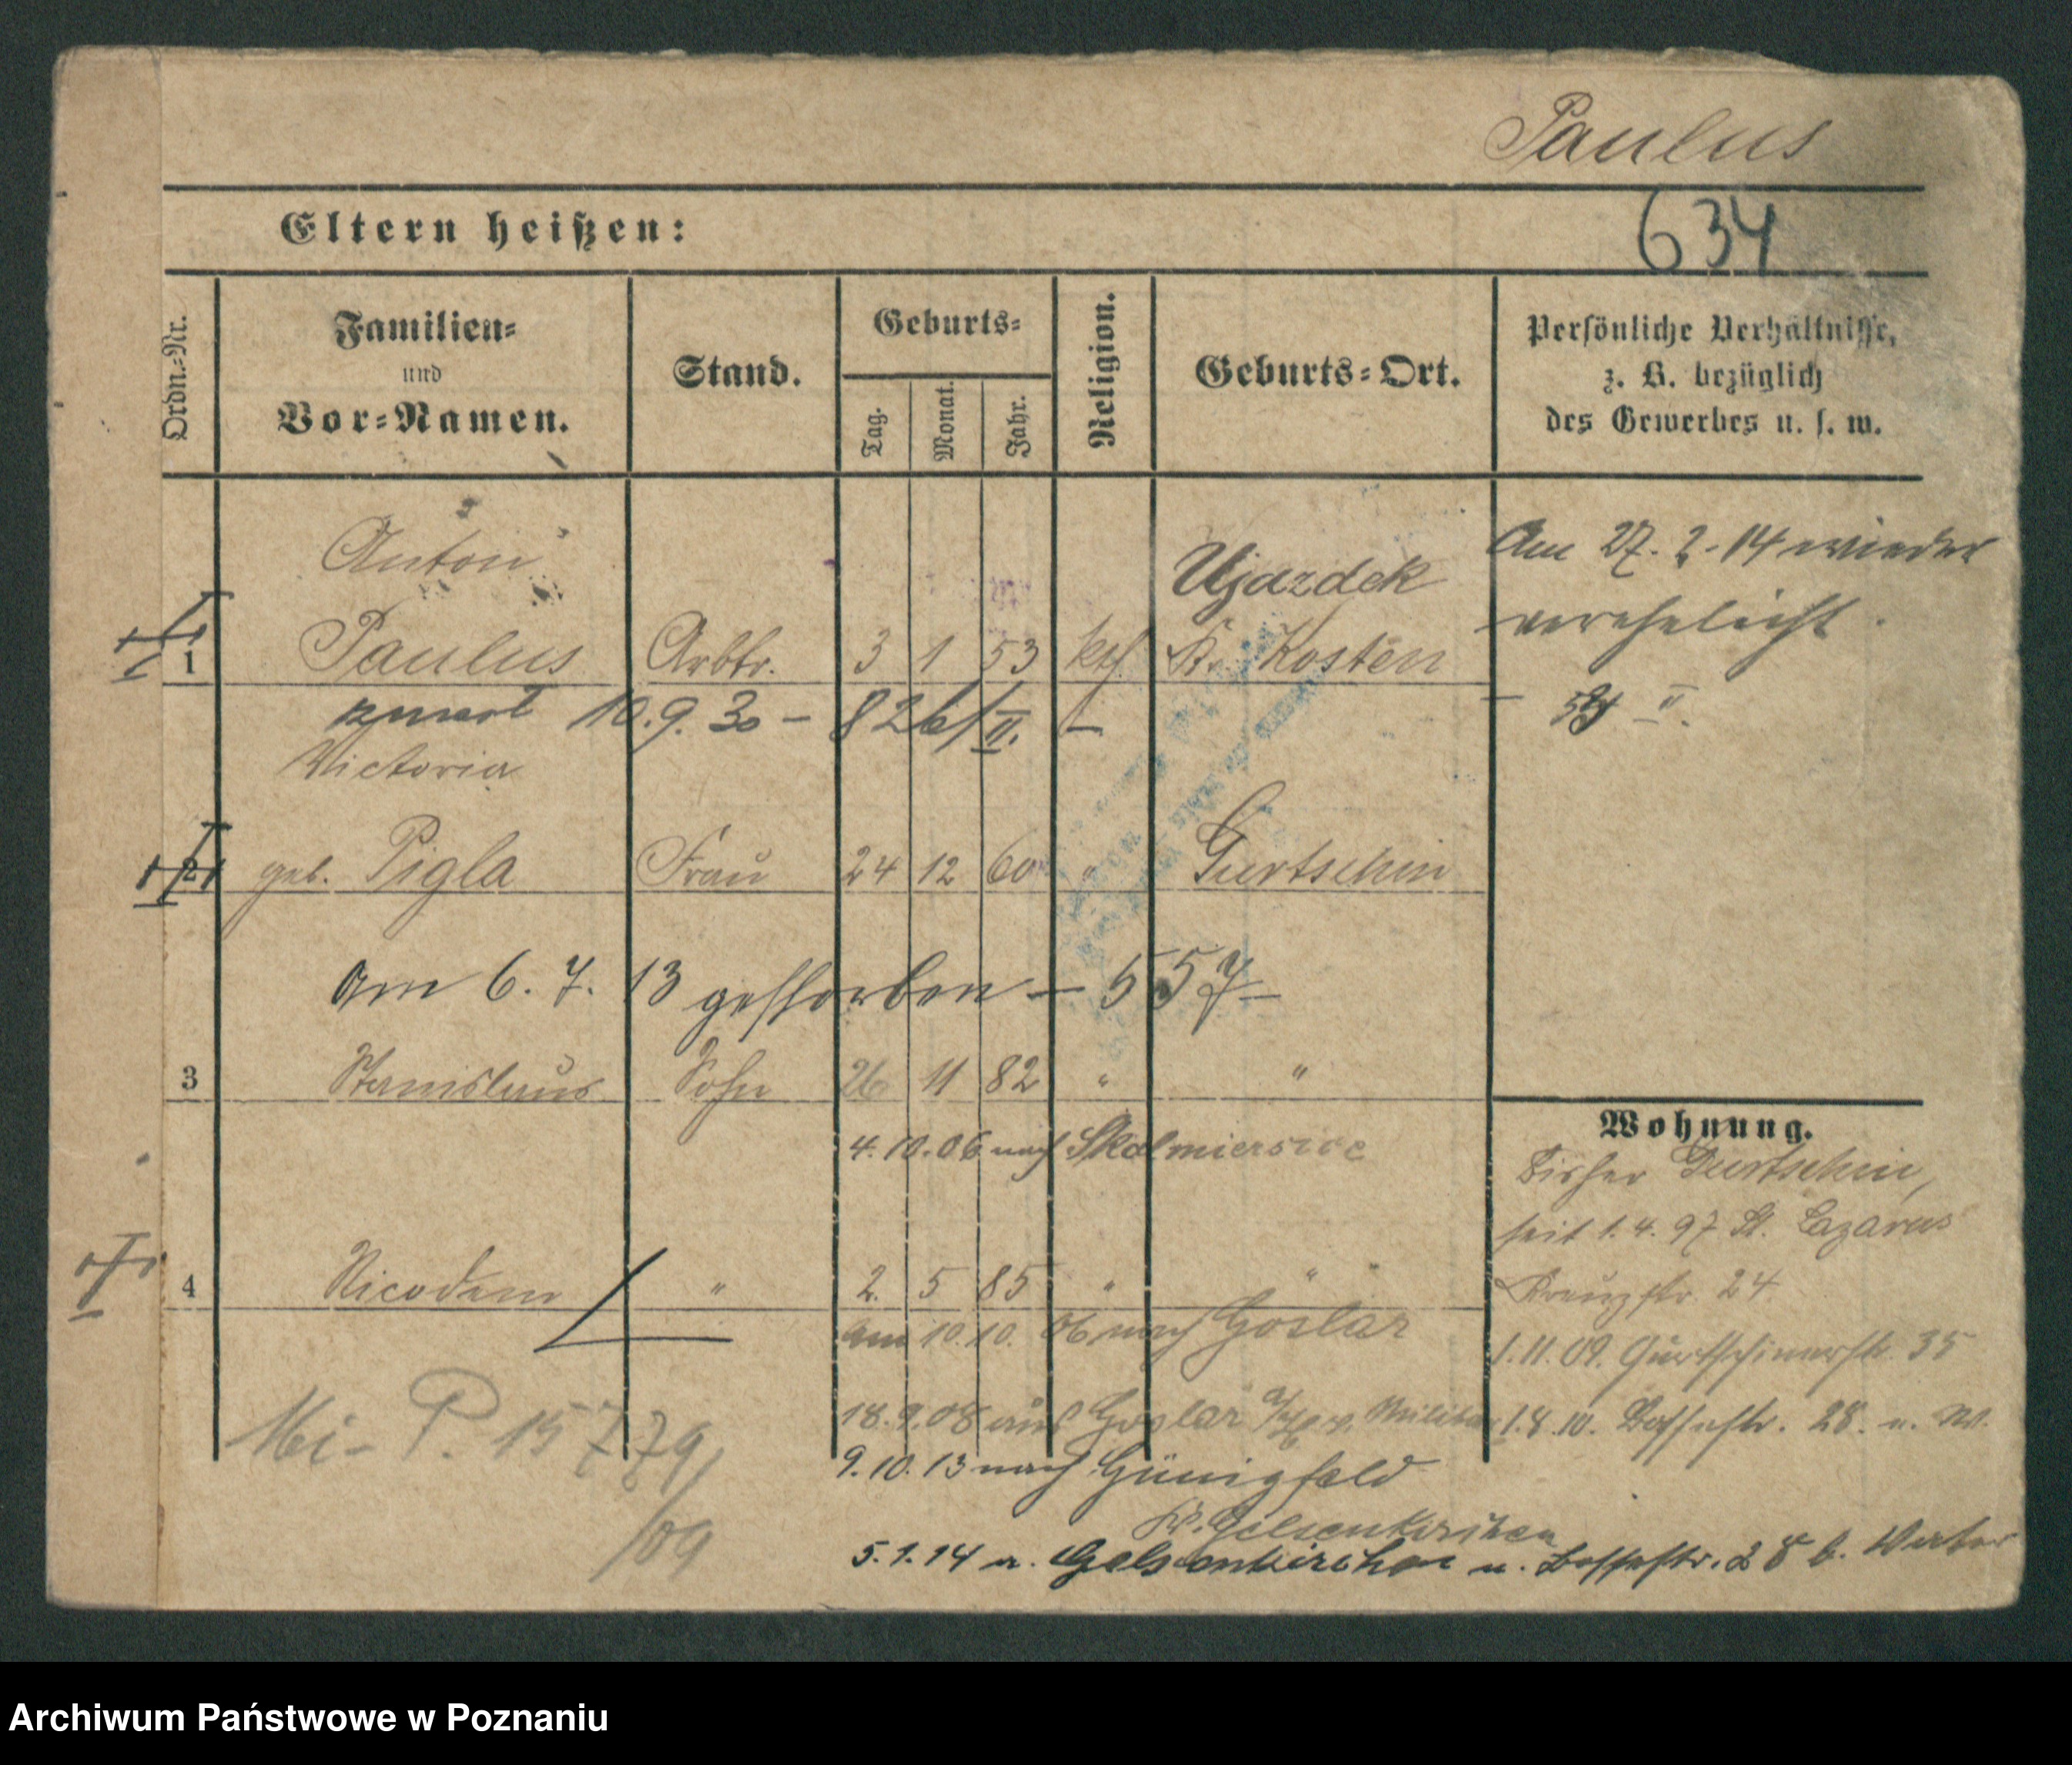 Paulus
Eltern heißen:
634
Ordn.-Nr.
Familien-
und
Vor-Namen.
Stand.
Geburts-
Tag.
Monat.
Jahr.
Religion.
Geburts-Ort.
Persönliche Verhältnisse,
z. B. bezüglich
des Gewerbes u. s. w.
Anton
Ujazdek
Am 27. 2. 14 wieder
verehelicht.
1 Paulus Arbtr. 3 1 53 kth Kr. Kosten
zmarł 10.9.30 - 826/II.
Victoria
2 geb. Pigla Frau 24 12 60 " Gurtschin
am 6. 7. 13 gestorben - 557 -
3 Stanislaus Sohn 26 11 82 " "
4. 10. 06 nach Skalmierzice
Wohnung.
Bisher Gurtschin,
seit 1. 4. 97 St. Lazarus
Kreuzstr. 24
4 Nicodem " 2. 5 85 " " "
am 10. 10. 06 nach Goslar
1. 11. 09. Gurtschinerstr. 35
18. 9. 08 aus Goslar Militär
1. 8. 10. 28. n. W.
Mi- P. 15779/09
9. 10. 13 nach Günnigfeld
Kr. Gelsenkirchen
5. 1. 14 v. Gelsenkirchen n. 28 b. Vater
Archiwum Państwowe w Poznaniu